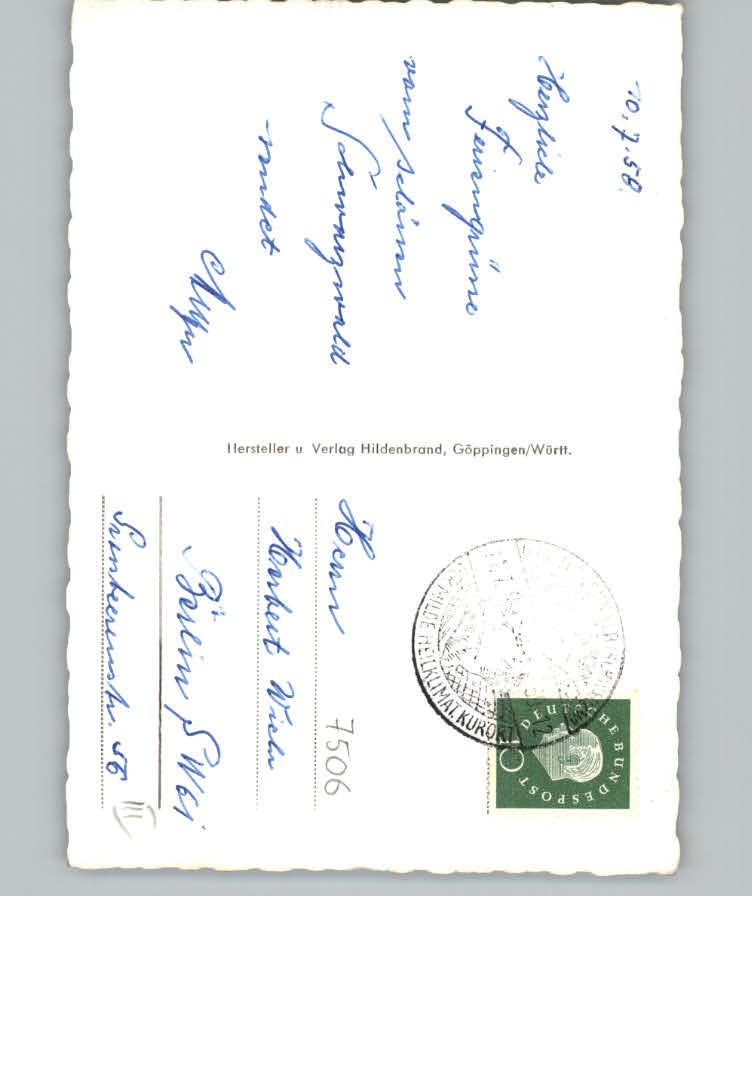 10.7.58.
Herzliche
Feriengrüsse
vom schönen
Schwarzwald
sendet
Hersteller u. Verlag Hildenbrand, Göppingen/Württ.
Herrn
Herbert
Berlin SW 61
56
7506
MILDE HEILKLIMAT. KURORT
DEUTSCHE BUNDESPOST